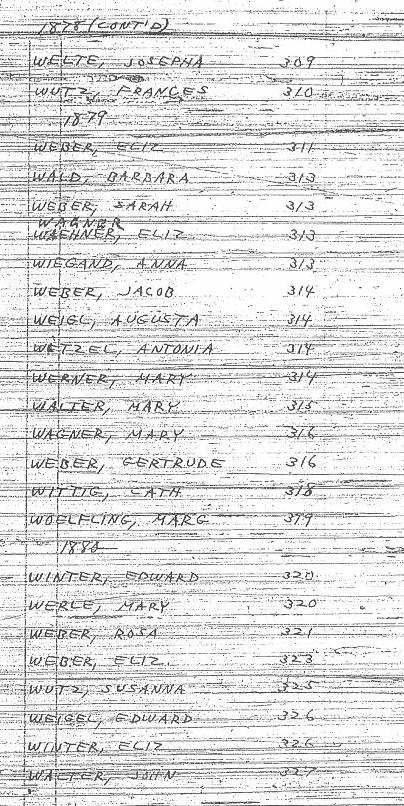 1878 (CONT'D)
WELTE, JOSEPHA 309
WUTZ, FRANCES 310
1879
WEBER, ELIZ 311
WALD, BARBARA 313
WEBER, SARAH 313
WAGNER
WAEHNER, ELIZ 313
WIEGAND, ANNA 313
WEBER, JACOB 314
WEIGL, AUGUSTA 314
WETZEL, ANTONIA 314
WERNER, MARY 314
WALTER, MARY 315
WAGNER, MARY 316
WEBER, GERTRUDE 316
WITTIG, CATH 318
WOELFLING, MARG 319
1880
WINTER, EDWARD 320
WERLE, MARY 320
WEBER, ROSA 321
WEBER, ELIZ. 323
WUTZ, SUSANNA 325
WEIGEL, EDWARD 326
WINTER, ELIZ 326
WALTER, JOHN 327